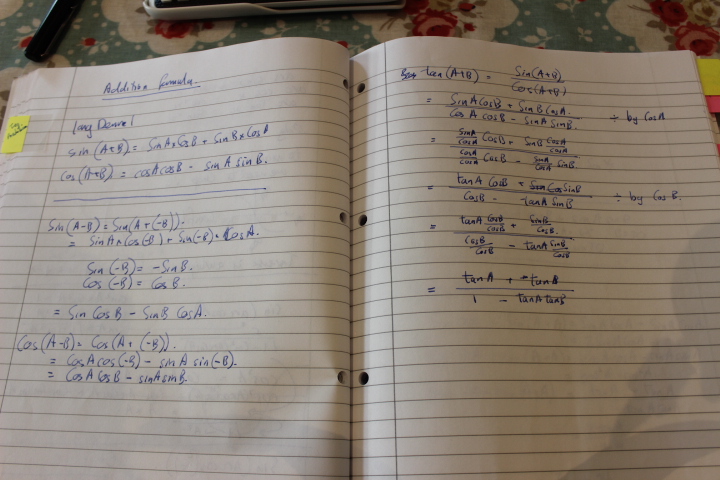 Addition formula.
Long Derive 1
sin (A+B) = SinA×CosB + SinB×CosA
cos (A+B) = cosAcosB - sinA sinB.
Sin(A-B) = Sin(A+(-B)).
= SinA×Cos(-B) + Sin(-B)×CosA.
Sin(-B) = -SinB.
Cos(-B) = CosB.
= Sin CosB - SinB CosA.
Cos(A-B) = Cos(A+(-B)).
= CosAcos(-B) - sinA sin(-B).
= CosA CosB - sinAsinB.
tan(A+B) = Sin(A+B) / Cos(A+B)
= SinACosB + SinBCosA / CosA cosB - SinA SinB. ÷ by CosA
= SinA/CosA CosB + SinB CosA/CosA / CosA/CosA CosB - SinA/CosA SinB.
= tanA CosB + SinB / CosB - tanA SinB ÷ by CosB.
= tanA CosB/CosB + SinB/CosB / CosB/CosB - tanA SinB/CosB
= tanA + tanB / 1 - tanAtanB